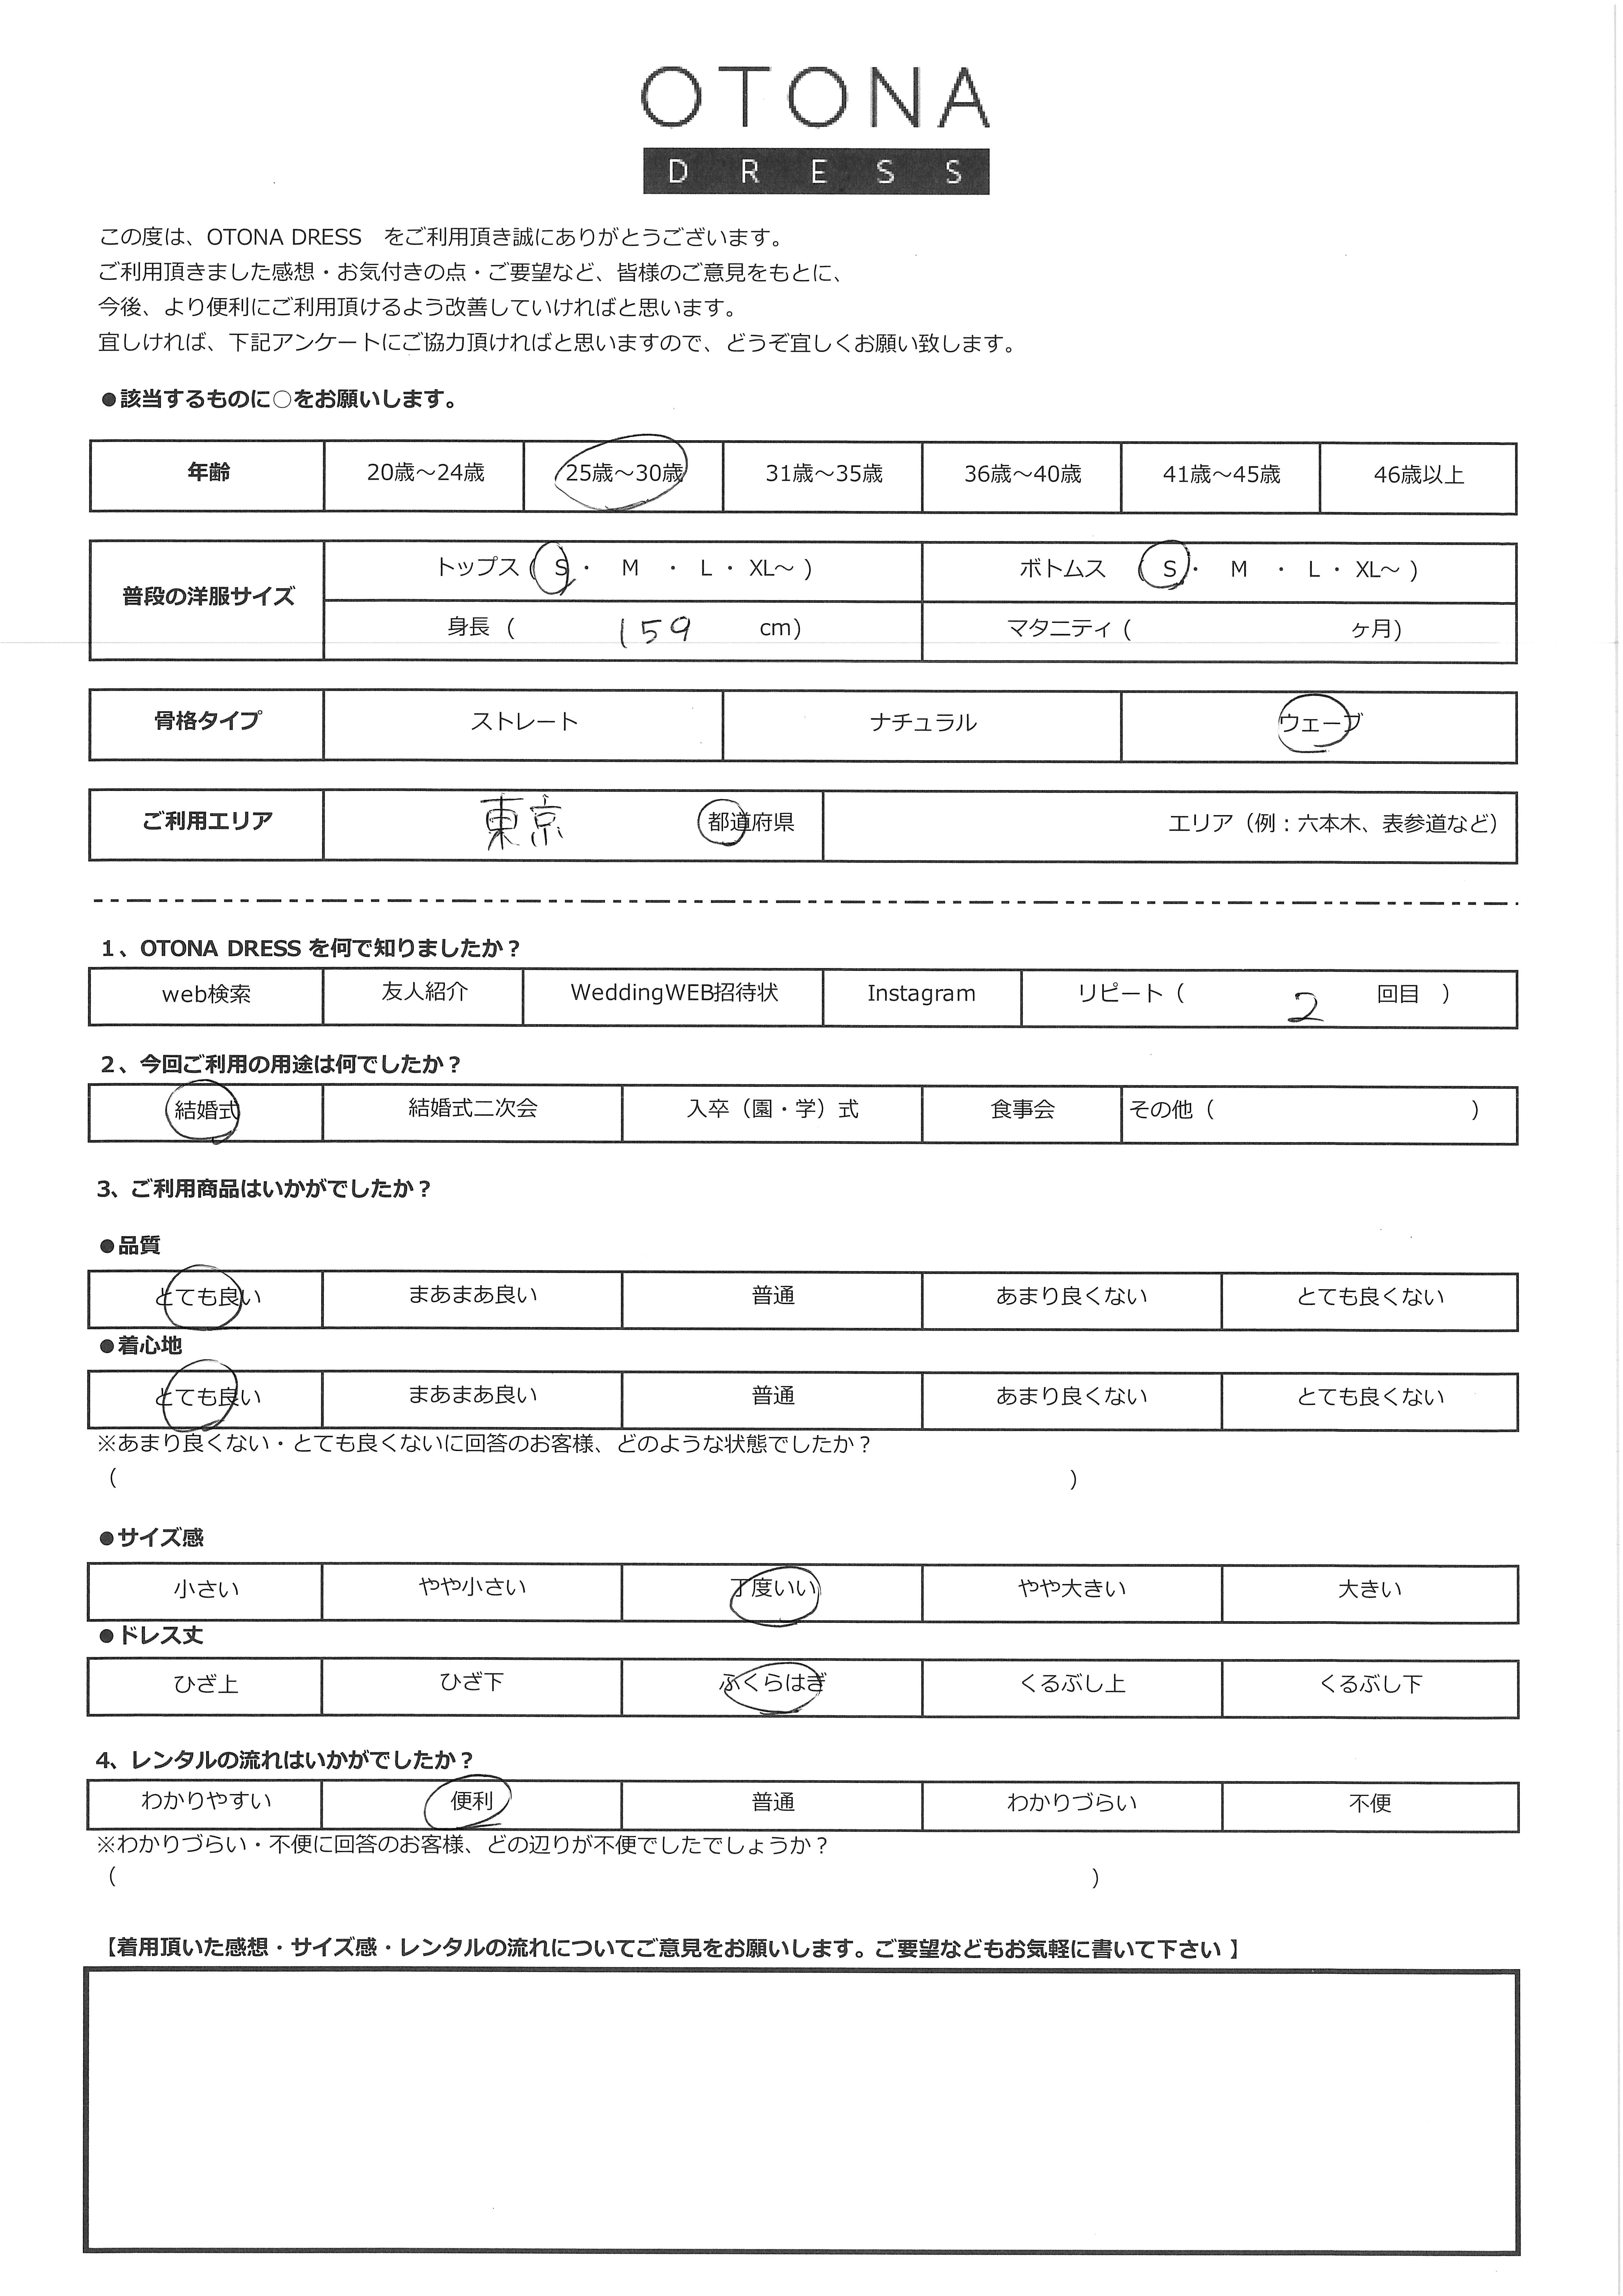 OTONA
DRESS
この度は、OTONA DRESS　をご利用頂き誠にありがとうございます。
ご利用頂きました感想・お気付きの点・ご要望など、皆様のご意見をもとに、
今後、より便利にご利用頂けるよう改善していければと思います。
宜しければ、下記アンケートにご協力頂ければと思いますので、どうぞ宜しくお願い致します。
●該当するものに○をお願いします。
年齢 20歳～24歳 25歳～30歳 31歳～35歳 36歳～40歳 41歳～45歳 46歳以上
普段の洋服サイズ トップス ( S ・ M ・ L ・ XL～ ) ボトムス ( S ・ M ・ L ・ XL～ )
身長 ( 159 cm) マタニティ ( ヶ月)
骨格タイプ ストレート ナチュラル ウェーブ
ご利用エリア 東京 都道府県 エリア（例：六本木、表参道など）
1、OTONA DRESS を何で知りましたか？
web検索 友人紹介 WeddingWEB招待状 Instagram リピート（ 2 回目 ）
2、今回ご利用の用途は何でしたか？
結婚式 結婚式二次会 入卒（園・学）式 食事会 その他（ ）
3、ご利用商品はいかがでしたか？
●品質
とても良い まあまあ良い 普通 あまり良くない とても良くない
●着心地
とても良い まあまあ良い 普通 あまり良くない とても良くない
※あまり良くない・とても良くないに回答のお客様、どのような状態でしたか？
（ ）
●サイズ感
小さい やや小さい 丁度いい やや大きい 大きい
●ドレス丈
ひざ上 ひざ下 ふくらはぎ くるぶし上 くるぶし下
4、レンタルの流れはいかがでしたか？
わかりやすい 便利 普通 わかりづらい 不便
※わかりづらい・不便に回答のお客様、どの辺りが不便でしたでしょうか？
（ ）
【着用頂いた感想・サイズ感・レンタルの流れについてご意見をお願いします。ご要望などもお気軽に書いて下さい 】